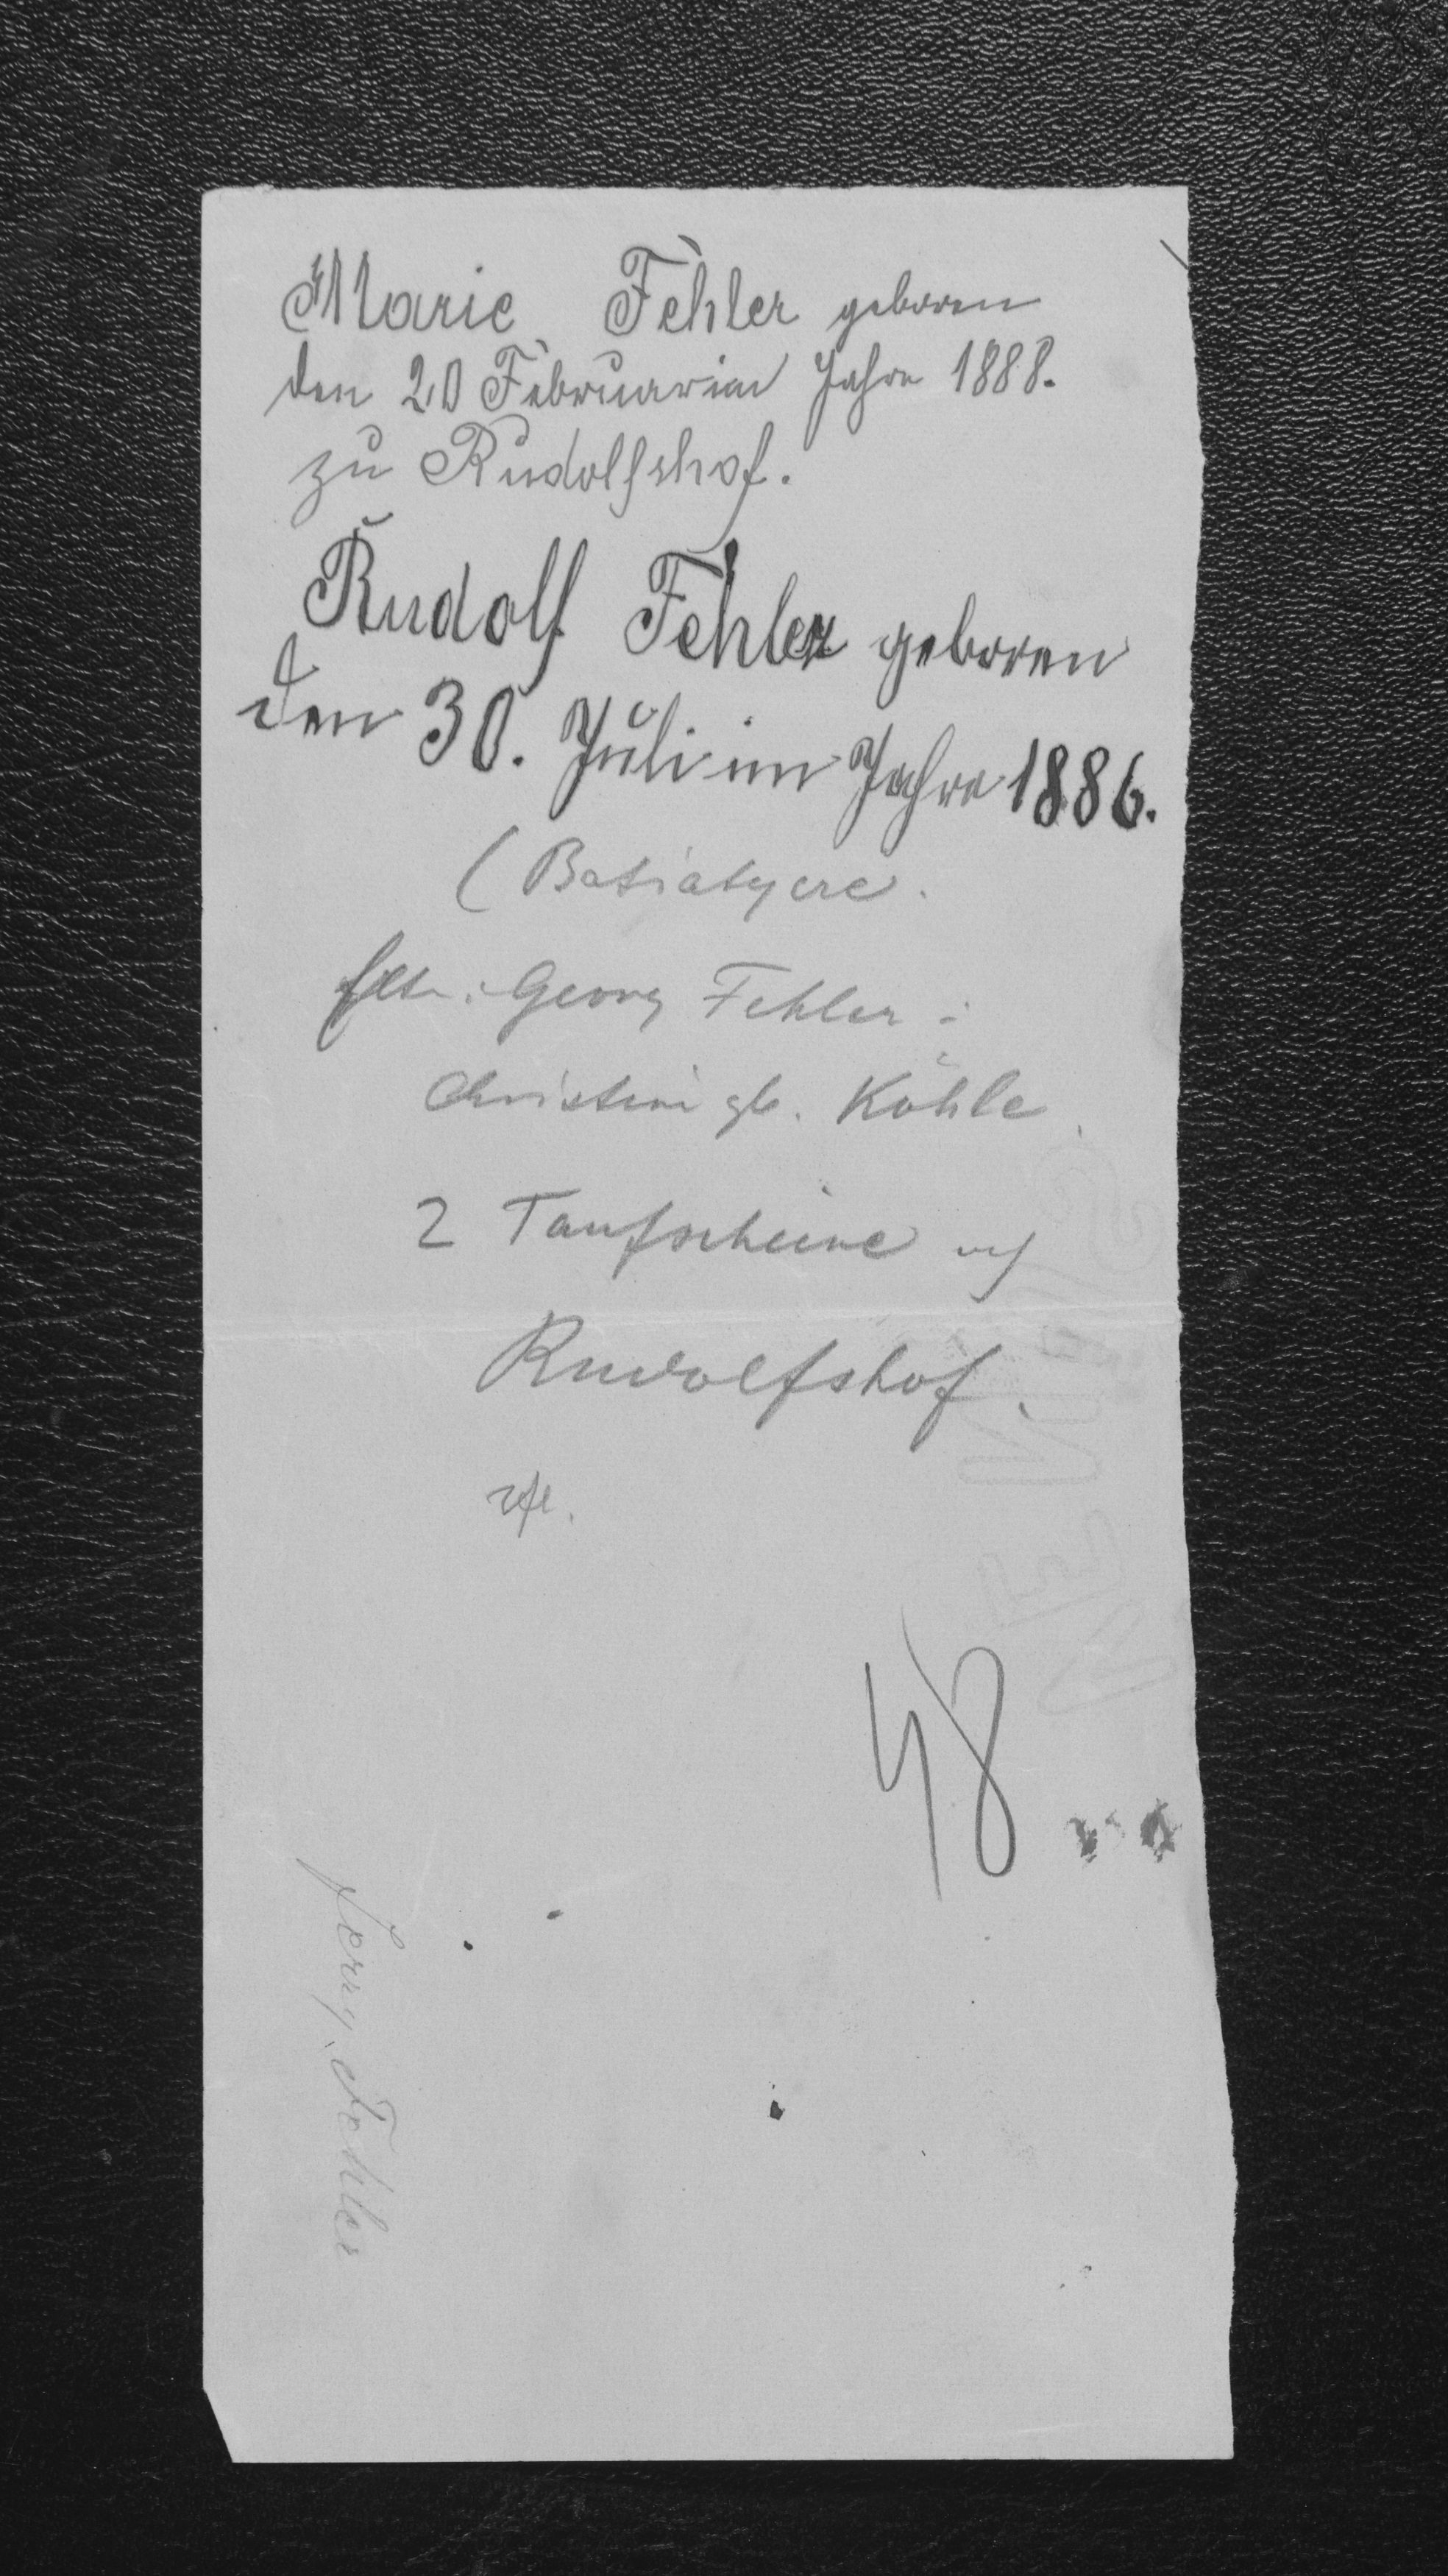 Marie Fehler geboren
den 20 Februar im Jahre 1888.
zu Rudolfshof.
Rudolf Fehler geboren
den 30. Juli im Jahre 1886.
(Batiatycze.
Georg Fehler
Christine gb. Köhle
2 Taufscheine
Rudolfshof.
48
Fehler